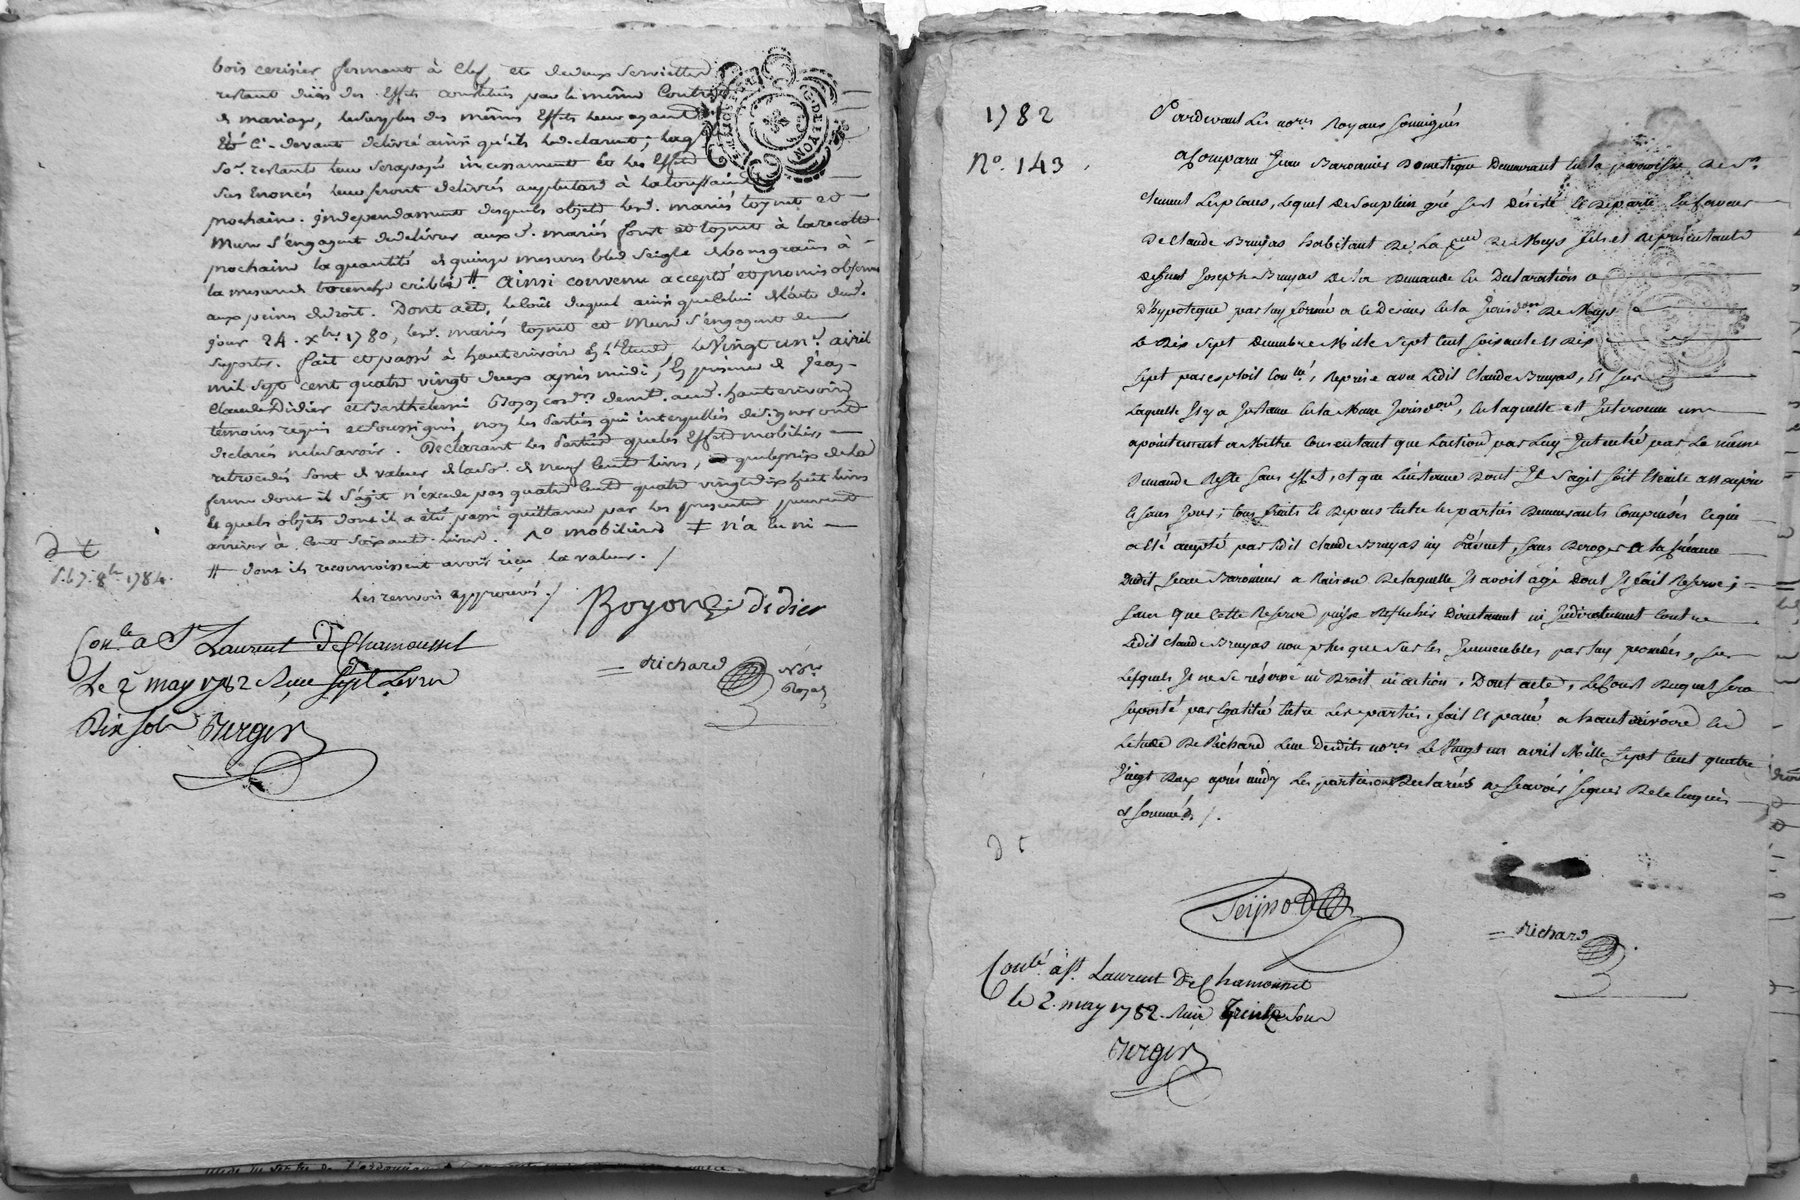 bois cerisier fermant à clef, et de deux serviettes
restant des Effets constitués par le même Contrat
de mariage, le surplus des mêmes Effets leur ayant
Eté Ci-devant délivré ainsi qu'ils le declarent; laq.
So.e restante leur sera payée incessament et les Effets
Sus Enoncés leur seront delivrés au plutard à la toussaint
prochaine. independamment desquels objets les d. mariés toynet et
Mure s'engagent de delivrer aux d. mariés font et toynet à la recolte
prochaine la quantité de quinze mesures bled seigle de bons grains à
la mesure de criblé # Ainsi convenu accepté et promis observer
aux peines de droit. Dont acte, le coût duquel ainsi que celui de l'acte du d.
jour 24. xbre 1780, les d. mariés toynet et Mure s'engagent de
suporter. fait et passé à hauterivoire En l'Etude le vingt un.e avril
mil sept cent quatre vingt deux après midi, En presence de jean
Claude Didier et Barthelemi Boyon cord.rs dem.t aud. hauterivoire
témoins requis et soussignés, non les Parties qui interpellées de signer ont
declaré ne le savoir. Declarant les Parties que les Effets mobiliers
retrocedés sont de valeur de la So. de neuf cent livres, et que le prix de la
ferme dont il s'agit n'excede pas quatre cent quatre vingt dix huit livres
les quels objets dont il a été passé quittance par les presentes peuvent
arriver à cent soixante livres. /\o mobiliers ǂ n'a eu ni
# dont ils reconnoissent avoir reçu la valeur. /
les renvois approuvés /
d t
7. 8bre 1784.
Boyon didier
Richard no.re
Royal
Con.lé a St Laurent De Chamousset
Le 2 may 1782 Reçu sept livres
Dix sols Berger
1782
N.o 143
Pardevant Les no.res Royaux soussignés
a Comparu Jean Baronnier Domestique Demeurant en la paroisse De St.
Clement Les places, Lequel De son plein gré s'est désisté et Departi En faveur
De Claude Bruyas habitant De La p.sse De Meys fils et Representant
deffunt Joseph Bruyas De la Demande En Declaration
d'hypoteque par luy formée a ce dernier en la Jurisd.on De Meys
Le Dix Sept Decembre Mille Sept Cent Soixante et Dix
Sept par exploit Con.lé, Reprise avec Ledit Claude Bruyas, et sur
Laquelle Il y a Instance en la Meme Jurisd.on, en laquelle est Intervenu un
apointement a Mettre Consentant que L'action par Luy Intentée par La meme
Demande Reste Sans effet, et que L'instance Dont Il S'agit soit Eteinte assoupie
et sans Jour; tous fraits et Depens Entre les parties Demeurants Compensés Ce qui
a Eté accepté par Ledit Claude Bruyas icy Présent, sans Deroger a la Creance
Dudit Jean Baronnier a Raison De laquelle Il avoit agi Dont Il fait Reserve;
sans Que Cette Reserve puisse Reflechir Directement ni Indirectement Contre
Ledit Claude Bruyas non plus que sur les Immeubles par luy possedés, sur
Lesquels Il ne se réserve ni Droit ni action. Dont acte, Le Cout Duquel Sera
suporté par Egalité Entre Les parties, fait et passé a hauterivoire En
L'etude De Richard L'un Desdits no.res Le Vingt un avril Mille Sept Cent quatre
Vingt Deux après midy Les parties ont Declarées ne Scavoir Signer De ce Enquis
et sommés /.
d t
Teijnod
Richard
Con.lé a St. Laurent De Chamousset
le 2. may 1782. Reçu Trente sous
Berger